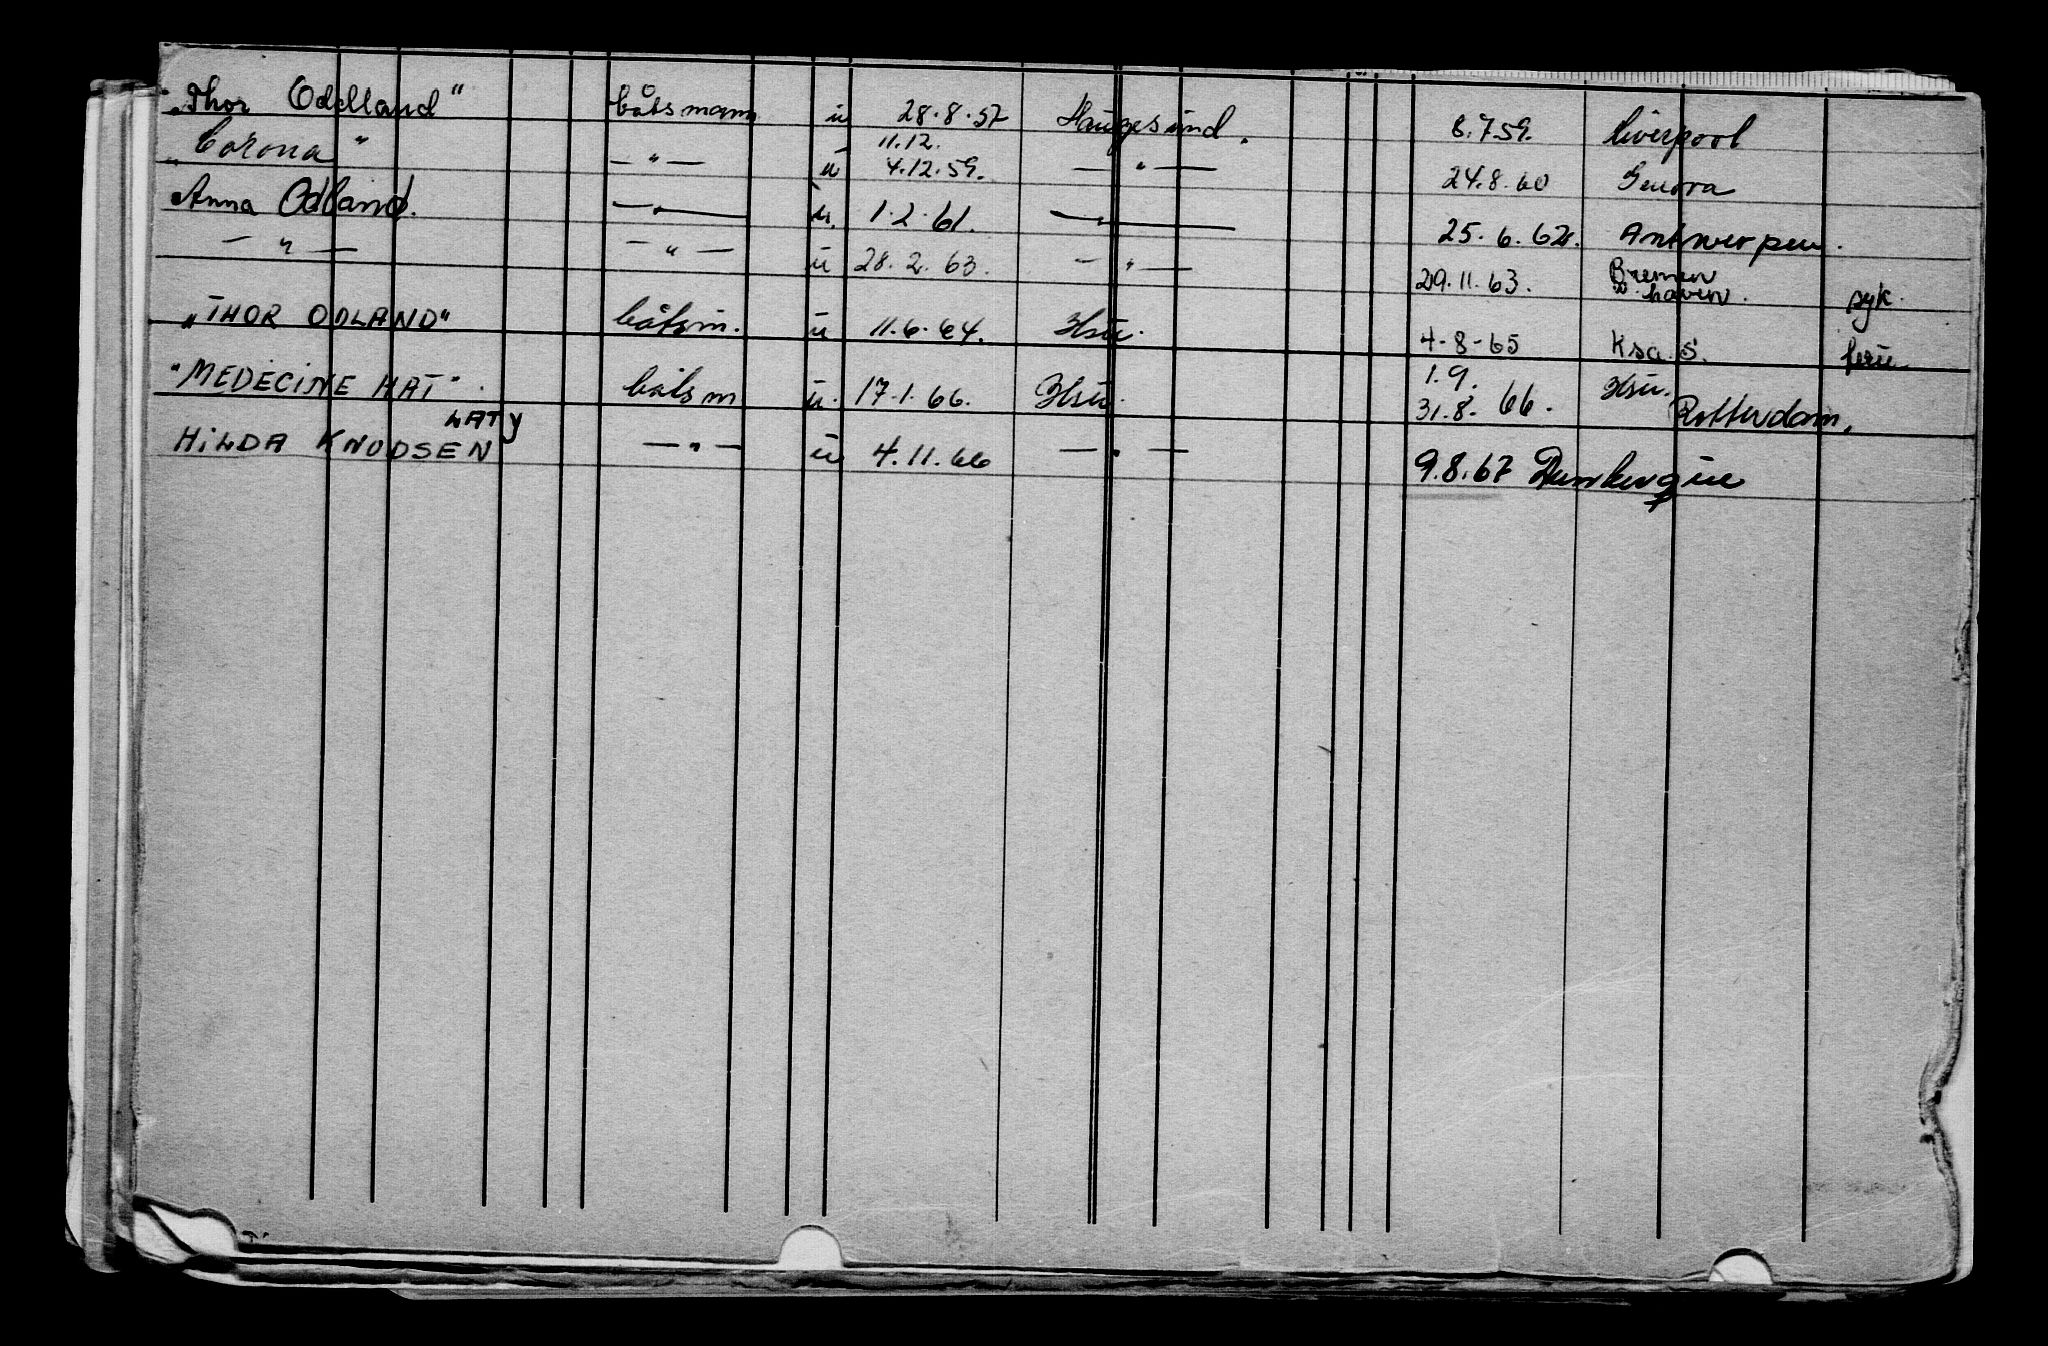 „Thor Odelland" båtsmann u 28.8.57 Haugesund. 8.7.59. Liverpool
„Corona" — " — u 11.12. 4.12.59. — " — 24.8.60 Genova
Anna Odland. — " — u. 1.2.61. — " — 25.6.62. Antwerpen.
— " — — " — u 28.2.63. — " — 29.11.63. Bremen haven. syk.
„THOR ODLAND" båtsm. u 11.6.64. Hsu. 4-8-65 Ksa. S. ferie
"MEDECINE HAT". båtsm u. 17.1.66. Hsu. 1.9. 31.8. 66. Hsu. Rotterdam.
LADY
HILDA KNUDSEN — " — u 4.11.66 — " — 9.8.67 Dunkerque